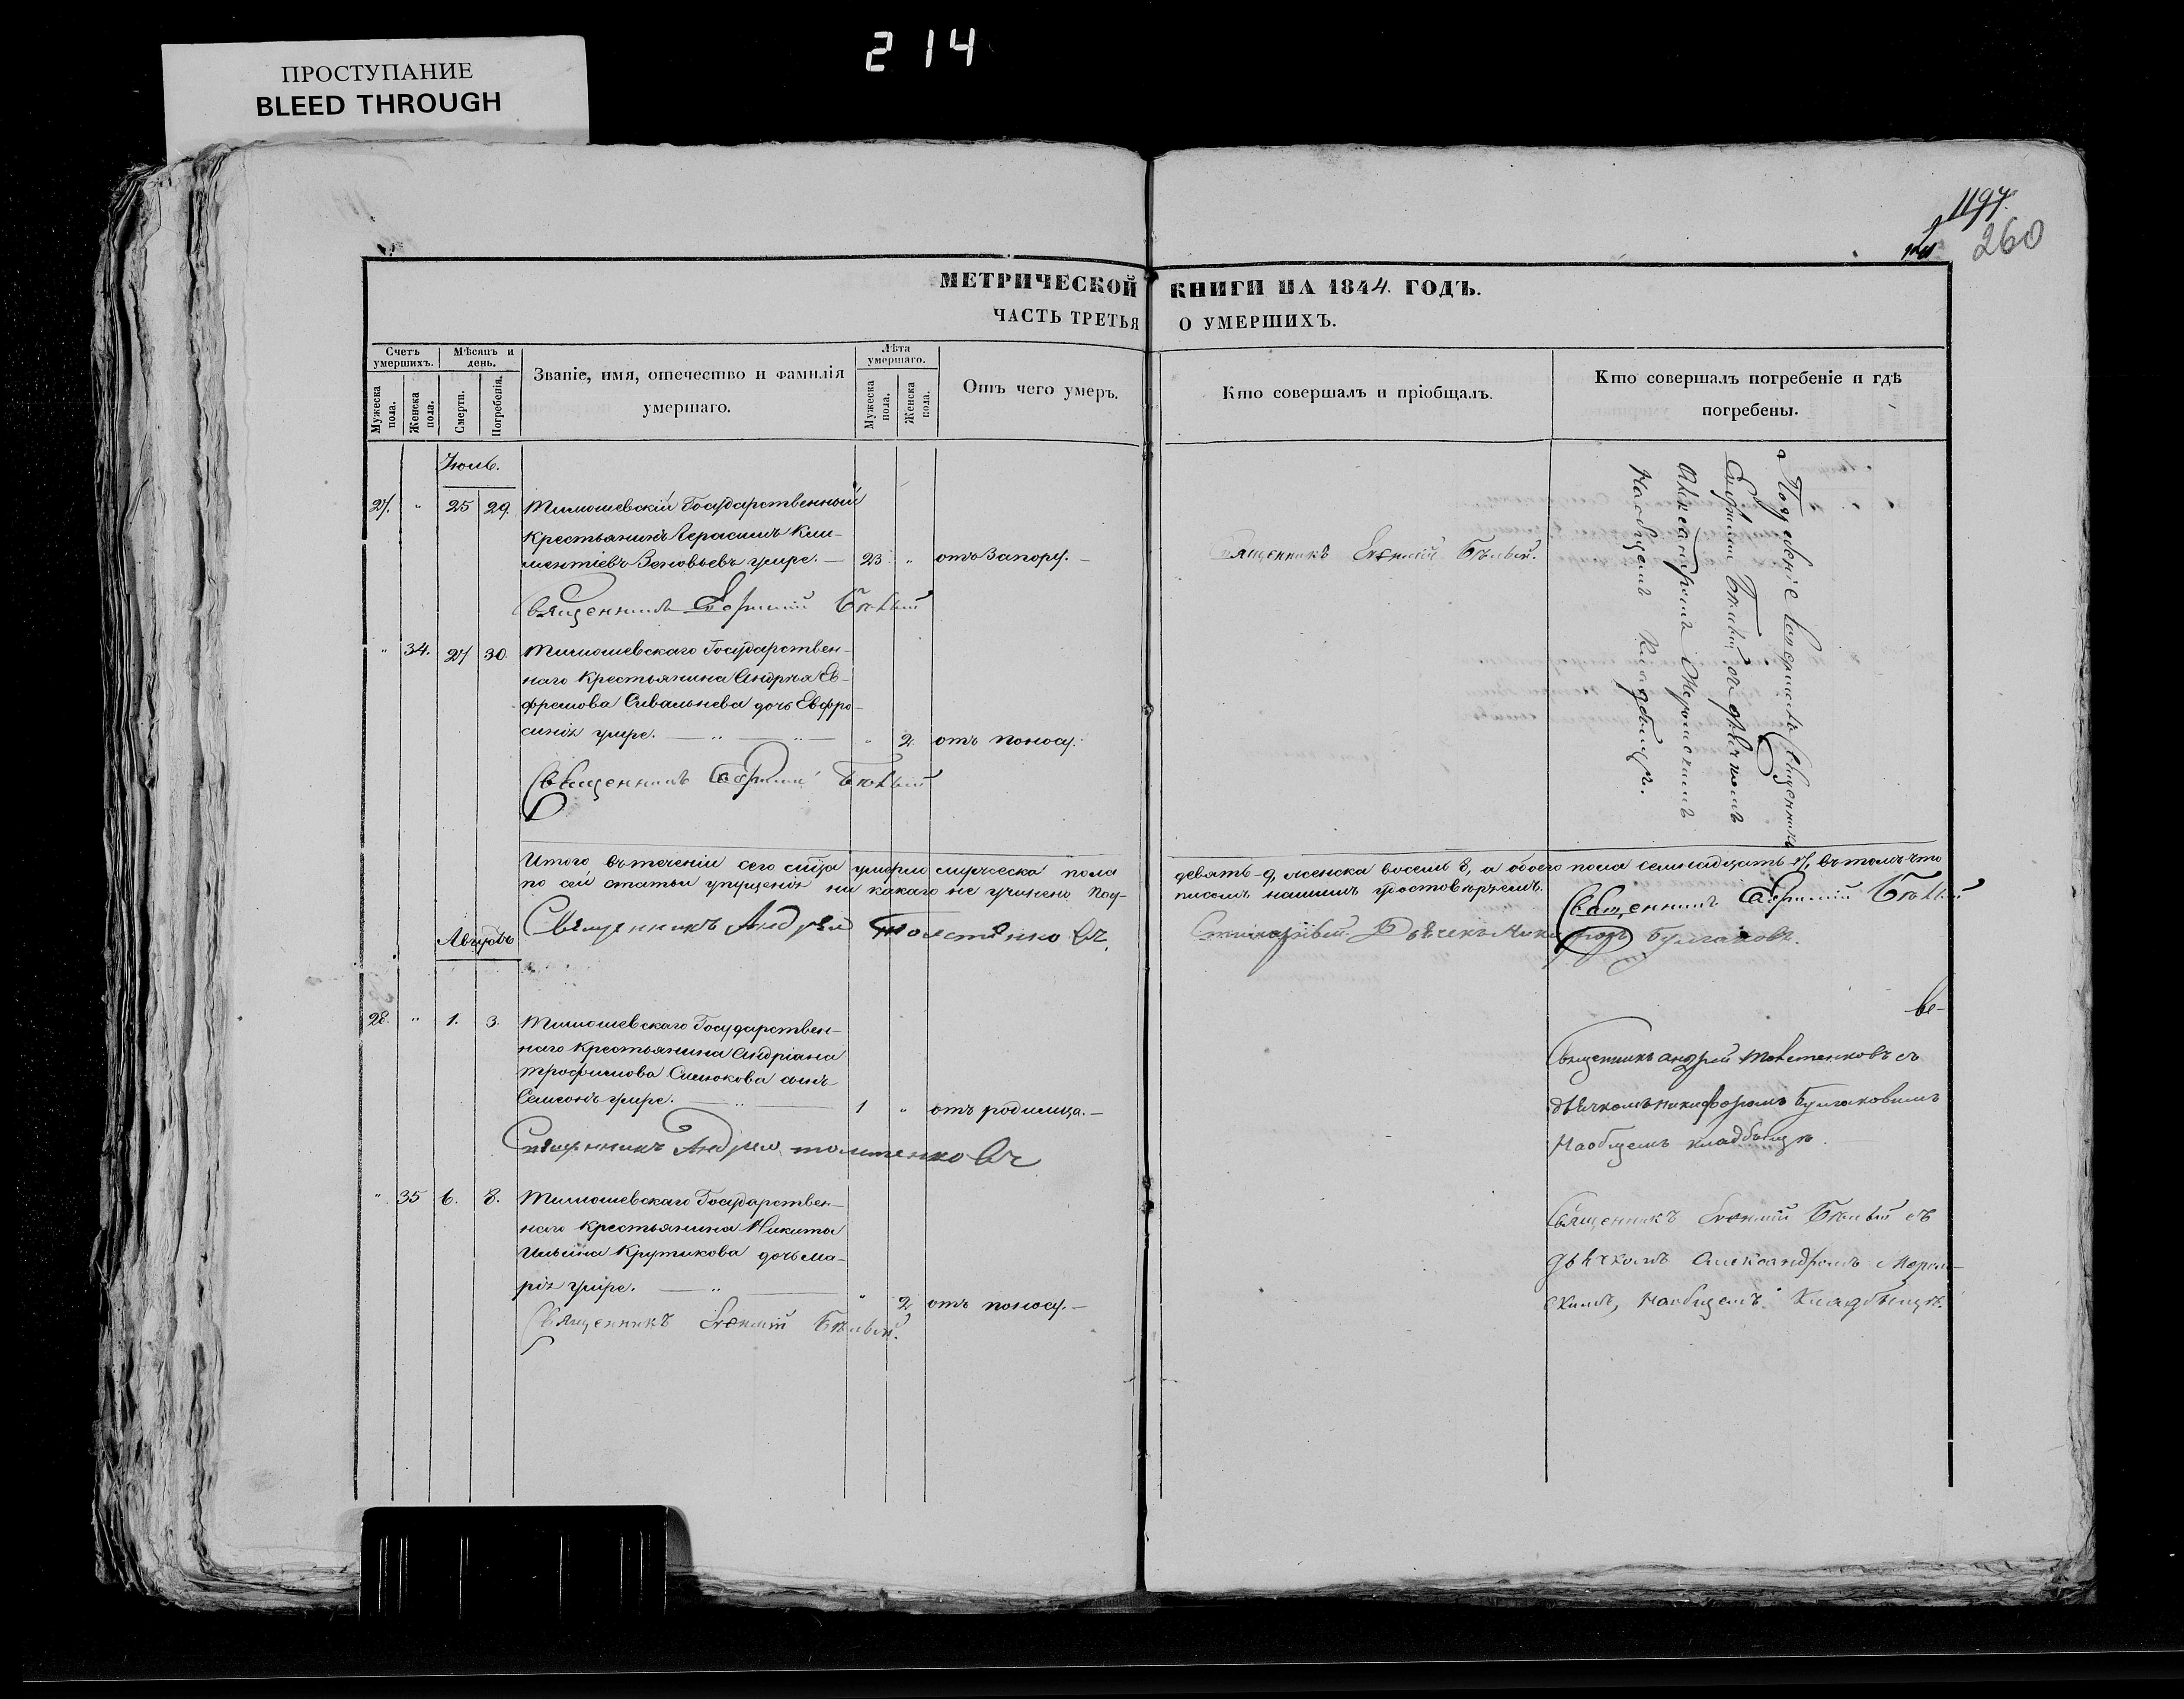 ПРОСТУПАНИЕ
BLEED THROUGH
214
1197.
260
МЕТРИЧЕСКОЙ КНИГИ НА 1844. ГОДЪ.
ЧАСТЬ ТРЕТЬЯ О УМЕРШИХЪ.
Счетъ умершихъ.
Мужеска пола.
Женска пола.
Мѣсяцъ и день.
Смерти.
Погребенія.
Званіе, имя, отечество и фамилія
умершаго.
Лѣта умершаго.
Мужеска пола.
Женска пола.
Отъ чего умеръ.
Кто совершалъ и пріобщалъ.
Кто совершалъ погребеніе и гдѣ
погребены.
Іюль.
27. " 25 29. Тимошевскій Государственный
Крестьянинъ Герасимъ Кли-
ментіевъ Зеновьевъ умре. — 23 " отъ Запору. —
Священникъ Евфимій Бѣлый.
Священникъ Евфимій Бѣлый
" 34. 27 30. Тимошевскаго Государствен-
наго Крестьянина Андрея Ев-
фремова Сивальнева дочь Евфро-
синія умре. — " 2. отъ поносу.
Священникъ Евфимій Бѣлый
Погребеніе совершалъ Священникъ
Евфимій Бѣлый съ дьячкомъ
Александромъ
На общемъ Кладбищѣ.
Итого въ теченіи сего мѣсяца умерло мужеска пола девять-9, женска восемь 8, а обоего пола семнадцать 17, въ томъ что
по сей статьи упущенія ни какаго не учинено под-писомъ нашимъ удостовѣряемъ.
Священникъ Евфимій Бѣлый
Священникъ Андрей Толстенковъ,
Стихарный Дьячекъ Никифоръ Булгаковъ.
Августъ
28. " 1. 3. Тимошевскаго Государствен-
наго Крестьянина Андріана
Трофимова Симокова сынъ
Семеонъ умре. — 1 " отъ родимца. —
Священникъ Андрей Толстенковъ
Священникъ Андрей Толстенковъ съ
дьячкомъ Никифоромъ Булгаковымъ
На общемъ кладбищѣ.
" 35 6. 8. Тимошевскаго Государствен-
наго Крестьянина Никиты
Ильина Крутикова дочь Ма-
рія умре. — " 2 отъ поносу. —
Священникъ Евфимій Бѣлый.
Священникъ Евфимій Бѣлый съ
дьячкомъ Александромъ
На общемъ Кладбищѣ.